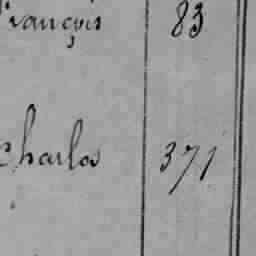 François 83
Charles 371